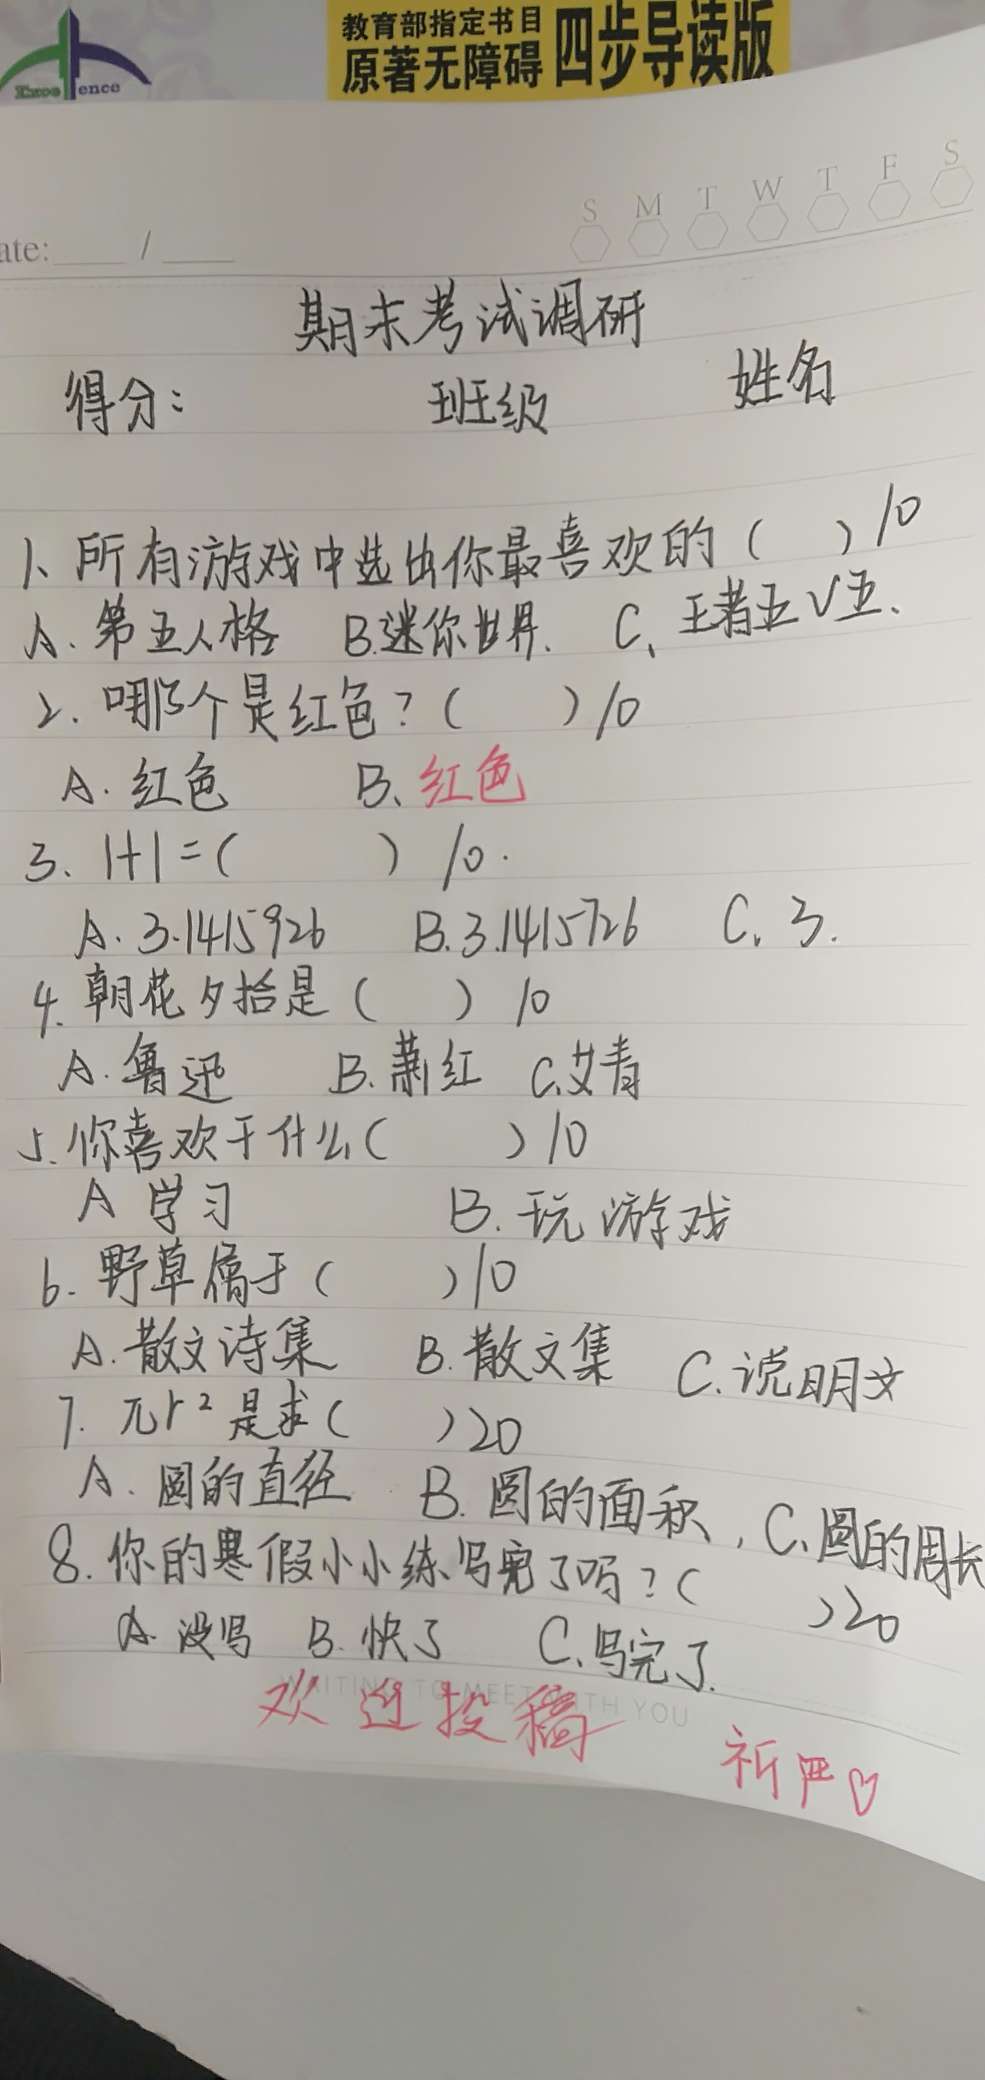 教育部指定书目
原著无障碍 四步导读版
Excellence
S M T W T F S
ate: ____ / ____
期末考试调研
得分： 班级 姓名
1、所有游戏中选出你最喜欢的（ ）10
A. 第五人格 B.迷你世界. C、王者五V五.
2. 哪个是红色？（ ）10
A. 红色 B、红色
3. 1+1=（ ）10.
A. 3.1415926 B.3.1415726 C. 3.
4. 朝花夕拾是（ ）10
A. 鲁迅 B.萧红 C.艾青
5.你喜欢干什么（ ）10
A 学习 B. 玩游戏
6. 野草属于（ ）10
A.散文诗集 B.散文集 C.说明文
7. πr²是求（ ）20
A. 圆的直径 B. 圆的面积, C.圆的周长
8.你的寒假小小练写完了吗？（ ）20
A. 没写 B. 快了 C.写完了.
WAITING TO MEET WITH YOU
欢迎投稿
祈严♡